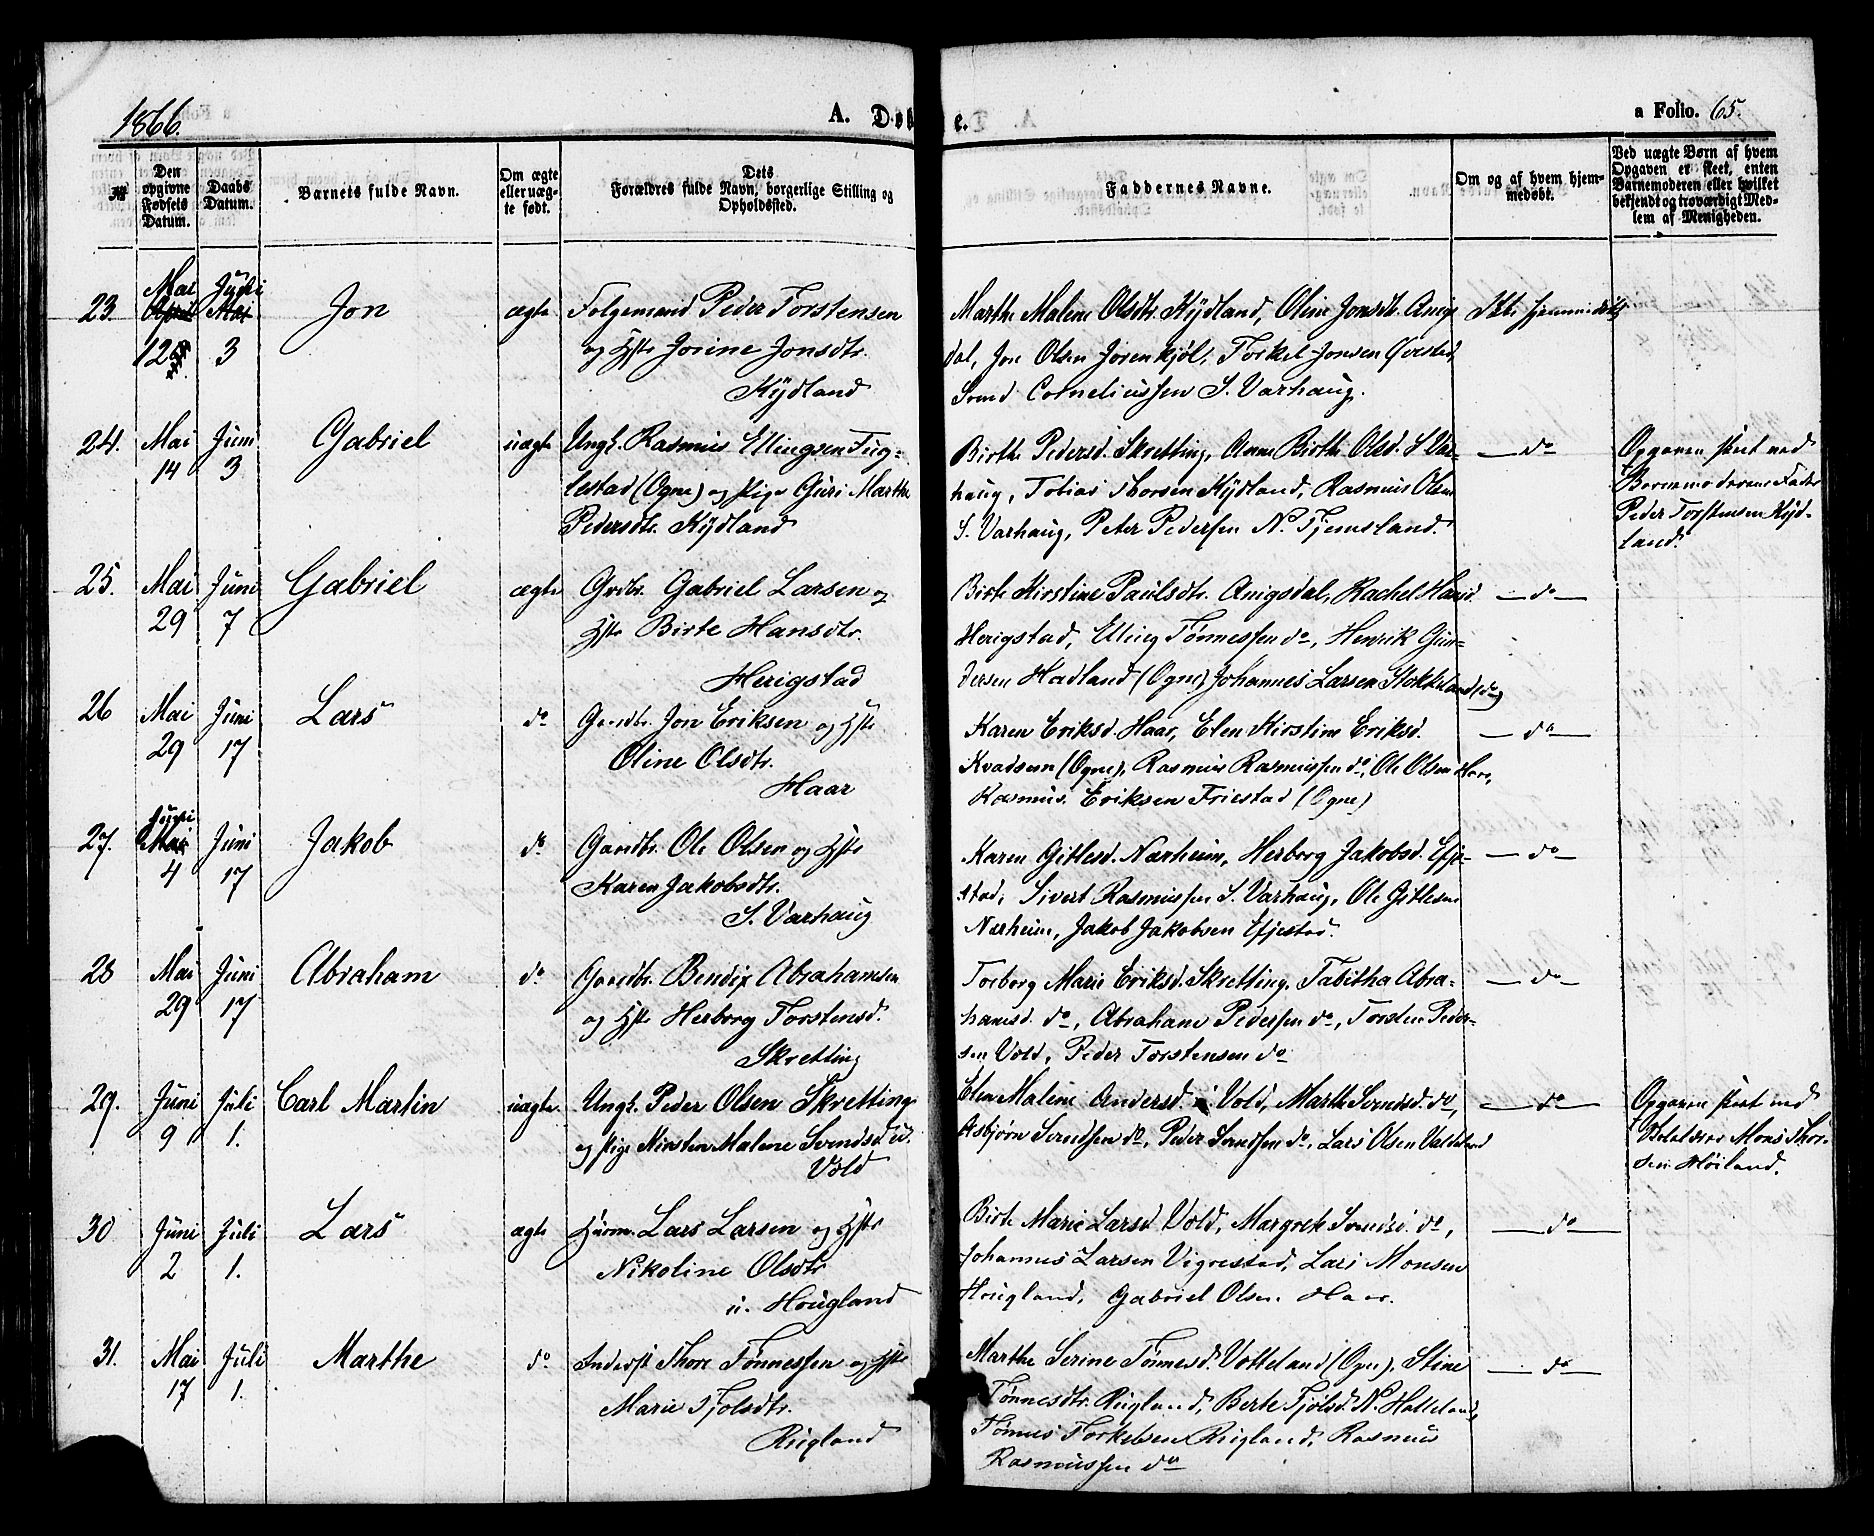 1866. A. Døb e. a Folio. 65.
№ Den opgivne Fødsels Datum. Daabs Datum. Barnets fulde Navn. Om ægte eller uægte født. Dets Forældres fulde Navn, borgerlige Stilling og Opholdssted. Faddernes Navne. Om og af hvem hjemmedøbt. Ved uægte Børn af hvem Opgaven er skeet, enten Barnemoderen eller hvilket bekjendt og troværdigt Medlem af Menigheden.
23. Mai 12 Juni 3 Jon ægte Folgemand Peder Torstensen
og Hstr Jorine Jonsdtr.
Kydland
Marthe Malene Olsdtr. Kydland, Oline Jonsdtr. Anigs
dal, Jon Olsen Josenkjøl, Torkel Jonsen Øvestad,
Svend Corneliussen S. Varhaug.
Ikke hjemmedøbt
24. Mai 14 Juni 3 Gabriel uægte Ungk. Rasmus Ellingsen Fug-
lestad (Ogne) og Pige Guri Marthe
Pedersdtr. Kydland
Birthe Pedersd. Skretting, Anne Birthe Olsd. S. Var-
haug, Tobias Thorsen Kydland, Rasmus Olsen
S. Varhaug, Peter Pedersen N. Tjemsland.
— do
Opgaven skeet ved
Barnemoderens Fader
Peder Torstensen Kyd-
land.
25. Mai 29 Juni 7 Gabriel ægte Grdbr. Gabriel Larsen og
Hstr Birte Hansdtr.
Herigstad
Birte Kirstine Paulsdtr. Anigsdal, Rachel Hansd.
Herigstad, Elling Tønnessen do, Henrik Gun-
dersen Hadland (Ogne) Johannes Larsen Stokkeland (do)
— do —
26 Mai 29 Juni 17 Lars do Gaardbr. Jon Eriksen og Hstr
Oline Olsdtr.
Haar
Karen Eriksd. Haar, Elen Kirstine Eriksd.
Kvadsem (Ogne), Rasmus Rasmussen do, Ole Olsen Haar,
Rasmus Eriksen Friestad (Ogne)
— do —
27. Juni 4 Juni 17 Jakob do Gaardbr. Ole Olsen og Hstr
Karen Jakobsdtr.
S. Varhaug
Karen Gitlesd. Nærheim, Herborg Jakobsd. Efje-
stad, Sivert Rasmussen S. Varhaug, Ole Gitlesen
Nærheim, Jakob Jakobsen Efjestad.
— do —
28 Mai 29 Juni 17 Abraham do Gaardbr. Bendix Abrahamsen
og Hstr Herborg Torstensd.
Skretting
Torborg Marie Eriksd. Skretting, Tabitha Abra-
hamsd. do, Abraham Pedersen do, Torsten Peder-
sen Vold, Peder Torstensen do
— do —
29. Juni 9 Juli 1. Carl Martin uægte Ungk. Peder Olsen Skretting
og Pige Kirsten Malene Svendsd.
Vold
Elen Malene Andersd. Vold, Marthe Svendsd. do,
Asbjørn Svendsen do, Peder Svendsen do, Lars Olsen Valdeland
— do —
Opgaven skeet ved
Mons Thor-
sen Høiland.
30 Juni 2 Juli 1. Lars ægte Huusm. Lars Larsen og Hstr
Nikoline Olsdtr
u. Hougland
Birte Marie Larsd Vold, Margrete Svendsd. do,
Johannes Larsen Vigrestad, Lars Monsen
Hougland, Gabriel Olsen Haar.
— do —
31. Mai 17 Juli 1. Marthe do Inderst Thore Tønnessen og Hstr
Marie Tjølsdtr.
Rugland
Marthe Serine Tønnesd. Votteland (Ogne), Stine
Tønnesdtr. Rugland, Berte Tjølsd. N. Halleland,
Tønnes Torkelsen Rugland, Rasmus
Rasmussen do
— do —